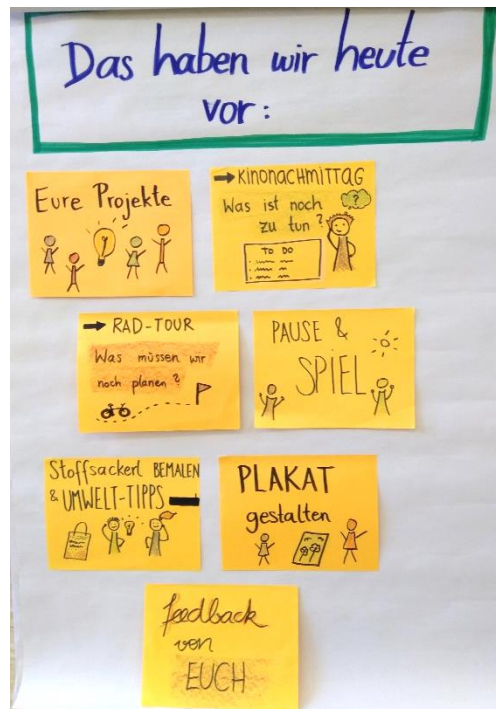 Das haben wir heute
vor:
Eure Projekte
→ KINONACHMITTAG
Was ist noch
zu tun?
?
TO DO
→ RAD-TOUR
Was müssen wir
noch planen?
PAUSE &
SPIEL
Stoffsackerl BEMALEN
& UMWELT-TIPPS
PLAKAT
gestalten
feedback
von
EUCH